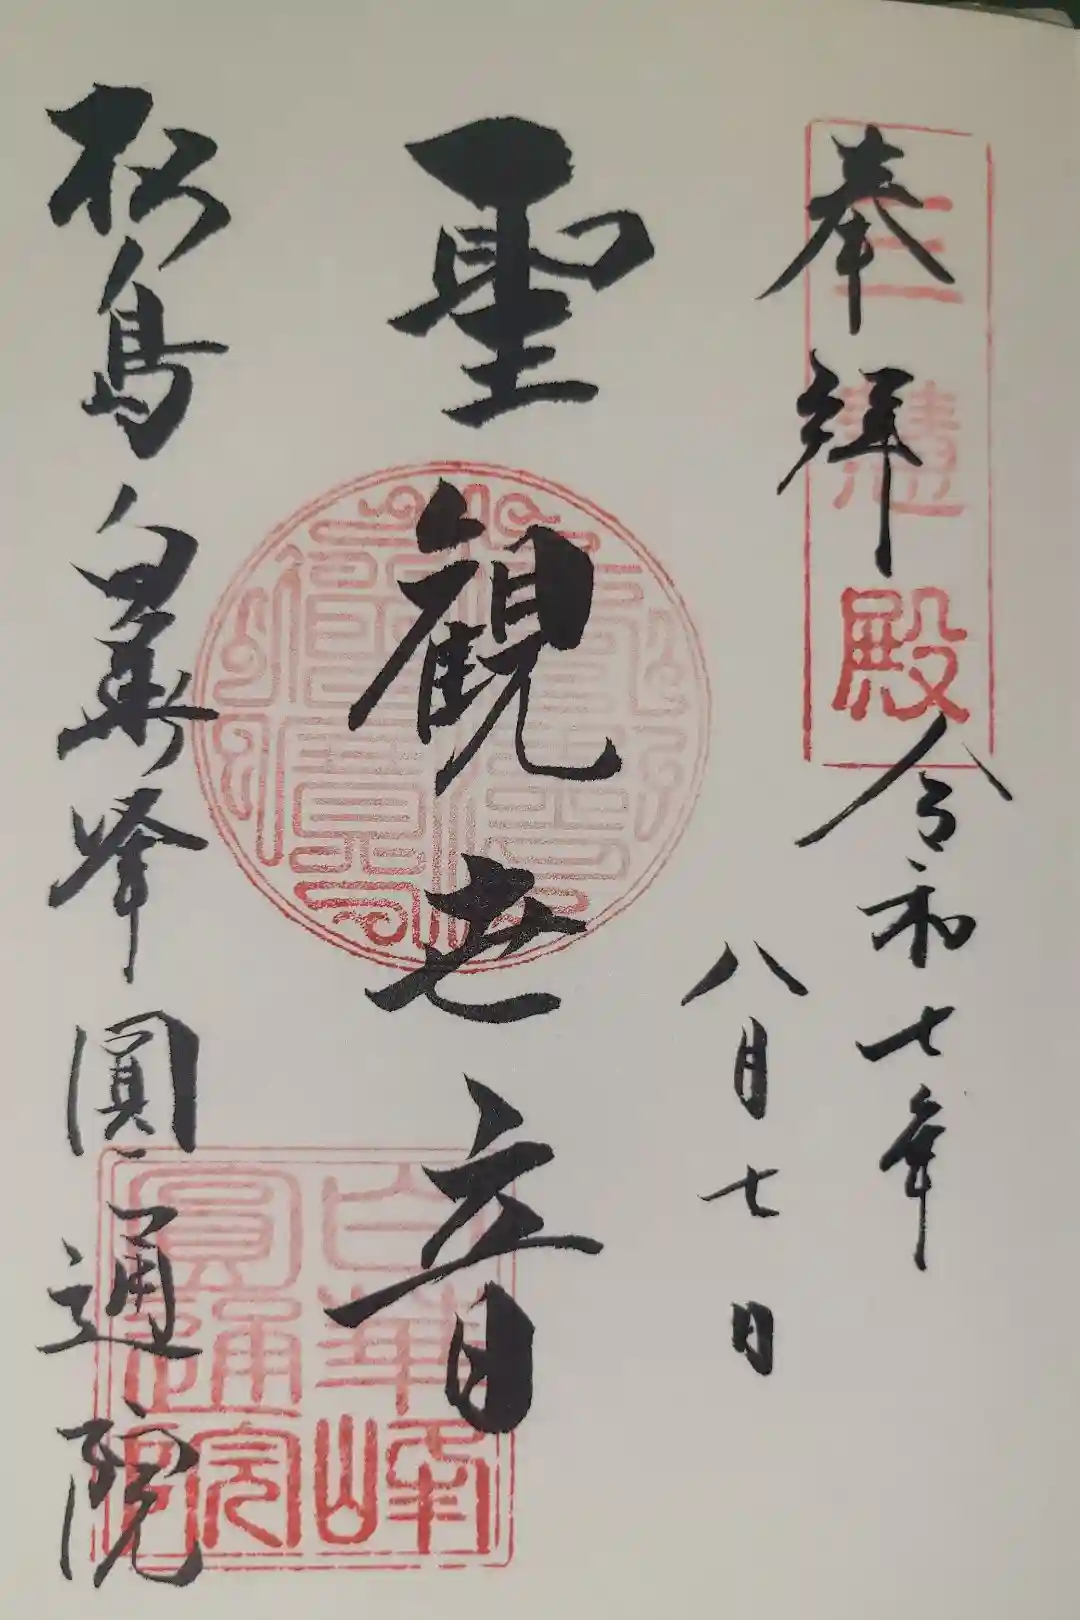 奉拝
三慧殿
令和七年
八月七日
聖観世音
松島白華峰圓通院
白華峰
圓通院